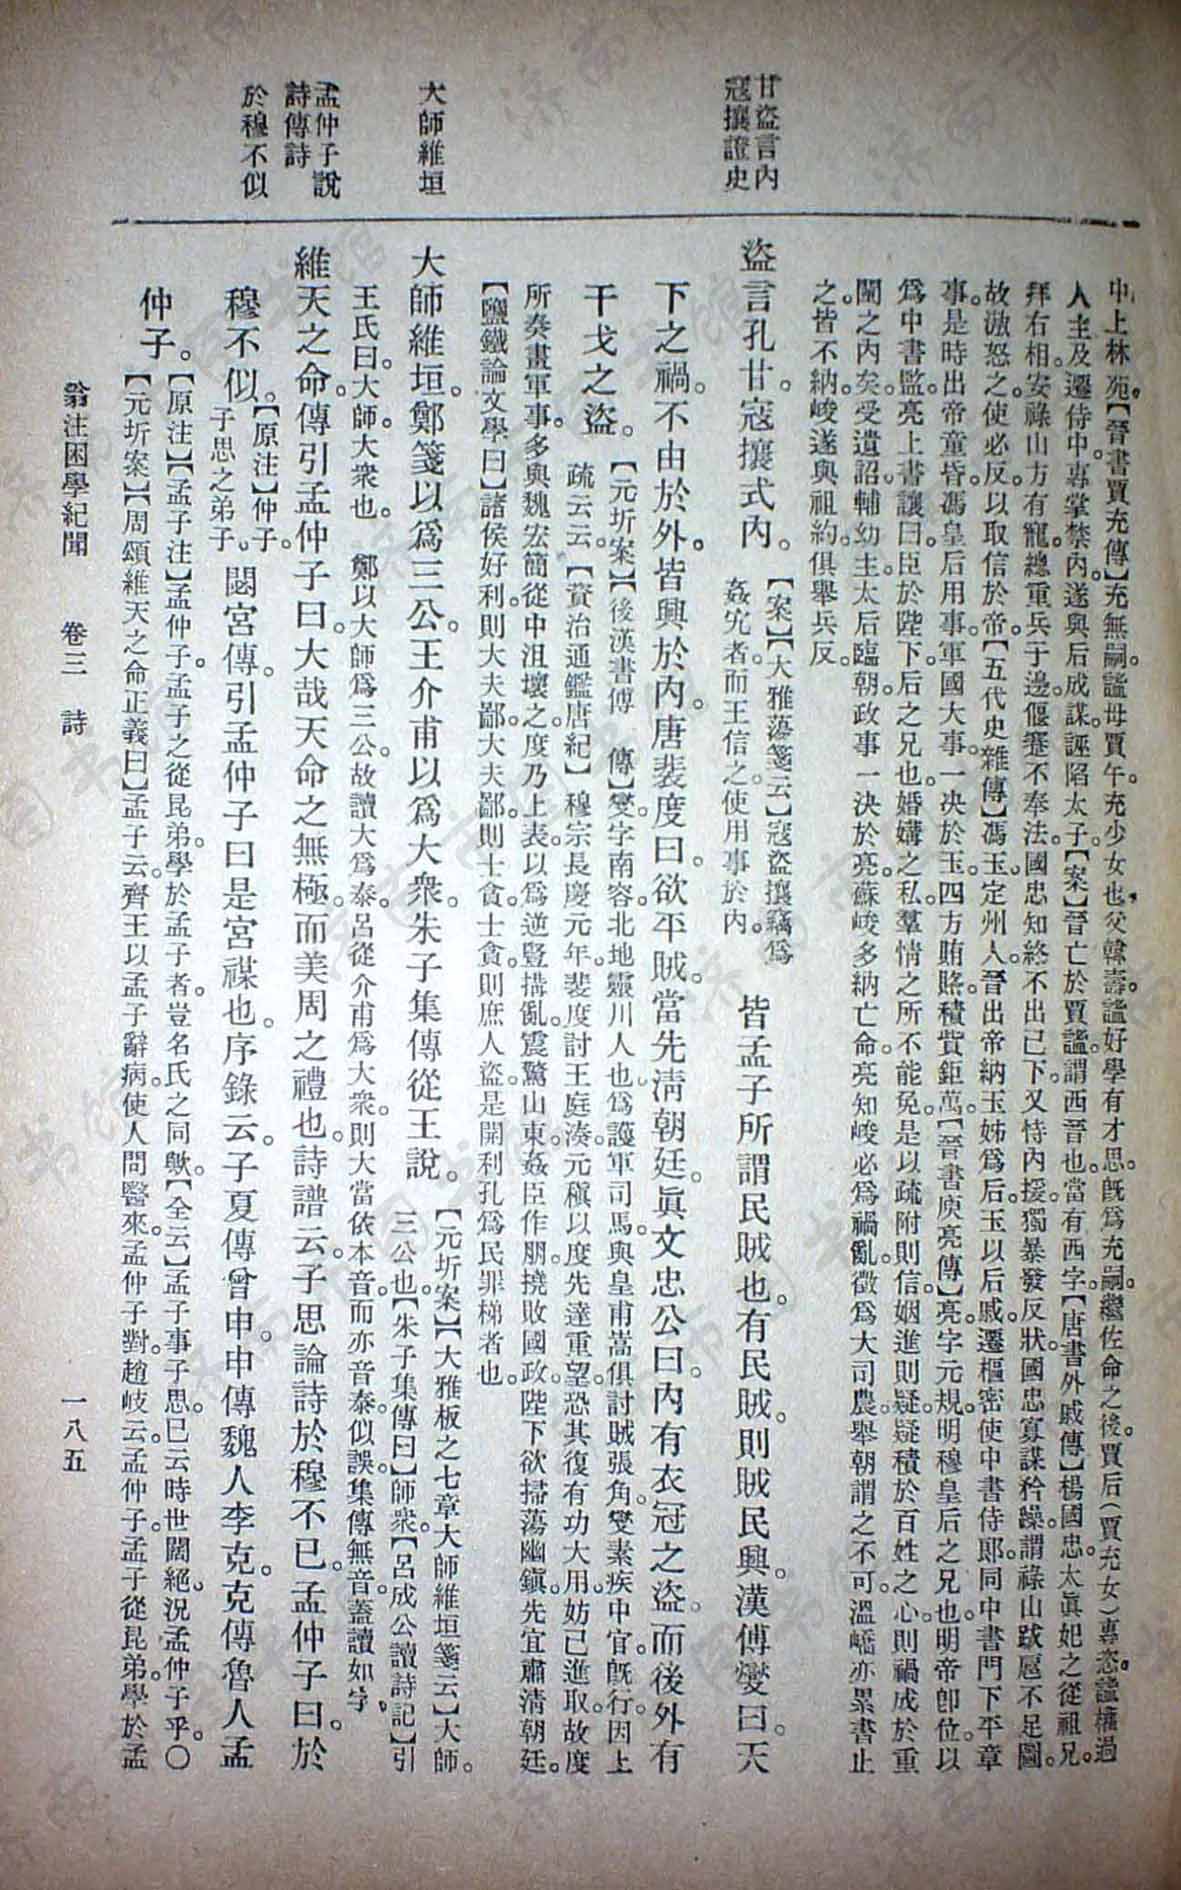 甘盜言內
寇攘證史
大師維垣
孟仲子說
詩傳詩
於穆不似
中上林苑。【晉書賈充傳】充無嗣。謐母賈午。充少女也。父韓壽。謐好學有才思。旣爲充嗣。繼佐命之後。賈后（賈充女）專恣。謐權過
人主。及遷侍中。專掌禁內。遂與后成謀。誣陷太子。【案】晉亡於賈謐。謂西晉也。當有西字。【唐書外戚傳】楊國忠。太眞妃之從祖兄。
拜右相。安祿山方有寵。總重兵于邊。偃蹇不奉法。國忠知終不出己下。又恃內援。獨暴發反狀。國忠寡謀矜躁。謂祿山跋扈不足圖。
故激怒之。使必反。以取信於帝。【五代史雜傳】馮玉。定州人。晉出帝納玉姊爲后。玉以后戚。遷樞密使中書侍郎。同中書門下平章
事。是時出帝童昏。馮皇后用事。軍國大事。一决於玉。四方賄賂。積貲鉅萬。【晉書庾亮傳】亮字元規。明穆皇后之兄也。明帝卽位。以
爲中書監。亮上書讓曰。臣於陛下。后之兄也。婚媾之私。羣情之所不能免。是以疏附則信。姻進則疑。疑積於百姓之心。則禍成於重
闈之內矣。受遺詔。輔幼主。太后臨朝。政事一決於亮。蘇峻多納亡命。亮知峻必爲禍亂。徵爲大司農。舉朝謂之不可。溫嶠亦累書止
之。皆不納。峻遂與祖約。俱舉兵反。
盜言孔甘。寇攘式內。【案】【大雅蕩箋云】寇盜攘竊爲
姦宄者。而王信之。使用事於內。皆孟子所謂民賊也。有民賊。則賊民興。漢傅燮曰。天
下之禍。不由於外。皆興於內。唐裴度曰。欲平賊。當先淸朝廷。眞文忠公曰。內有衣冠之盜。而後外有
干戈之盜。【元圻案】【後漢書傅　傳】燮字南容。北地靈川人也。爲護軍司馬。與皇甫嵩俱討賊張角。燮素疾中官。旣行。因上
疏云云。【資治通鑑唐紀】穆宗長慶元年。裴度討王庭湊。元稹以度先達重望。恐其復有功大用。妨己進取。故度
所奏畫軍事。多與魏宏簡從中沮壞之。度乃上表。以爲逆豎搆亂。震驚山東。姦臣作朋。撓敗國政。陛下欲掃蕩幽鎭。先宜肅清朝廷。
【鹽鐵論文學曰】諸侯好利則大夫鄙。大夫鄙則士貪。士貪則庶人盜。是開利孔。爲民罪梯者也。
大師維垣。鄭箋以爲三公。王介甫以爲大衆。朱子集傳從王說。【元圻案】【大雅板之七章大師維垣箋云】大師。
三公也。【朱子集傳曰】師衆。【呂成公讀詩記】引
王氏曰。大師。大衆也。　鄭以大師爲三公。故讀大爲泰。呂從介甫爲大衆。則大當依本音。而亦音泰。似誤。集傳無音。蓋讀如字。
維天之命。傳引孟仲子曰。大哉天命之無極。而美周之禮也。詩譜云。子思論詩於穆不已。孟仲子曰。於
穆不似。【原注】【仲子。
子思之弟子。閟宮傳。引孟仲子曰是宮禖也。序錄云。子夏傳曾申。申傳魏人李克。克傳魯人孟
仲子。【原注】【孟子注】孟仲子。孟子之從昆弟。學於孟子者。豈名氏之同歟。【全云】孟子事子思。已云時世闊絕。況孟仲子乎。〇
【元圻案】【周頌維天之命正義曰】孟子云。齊王以孟子辭病。使人問醫來。孟仲子對。趙岐云。孟仲子。孟子從昆弟。學於孟
翁注困學紀聞　卷三　詩　一八五